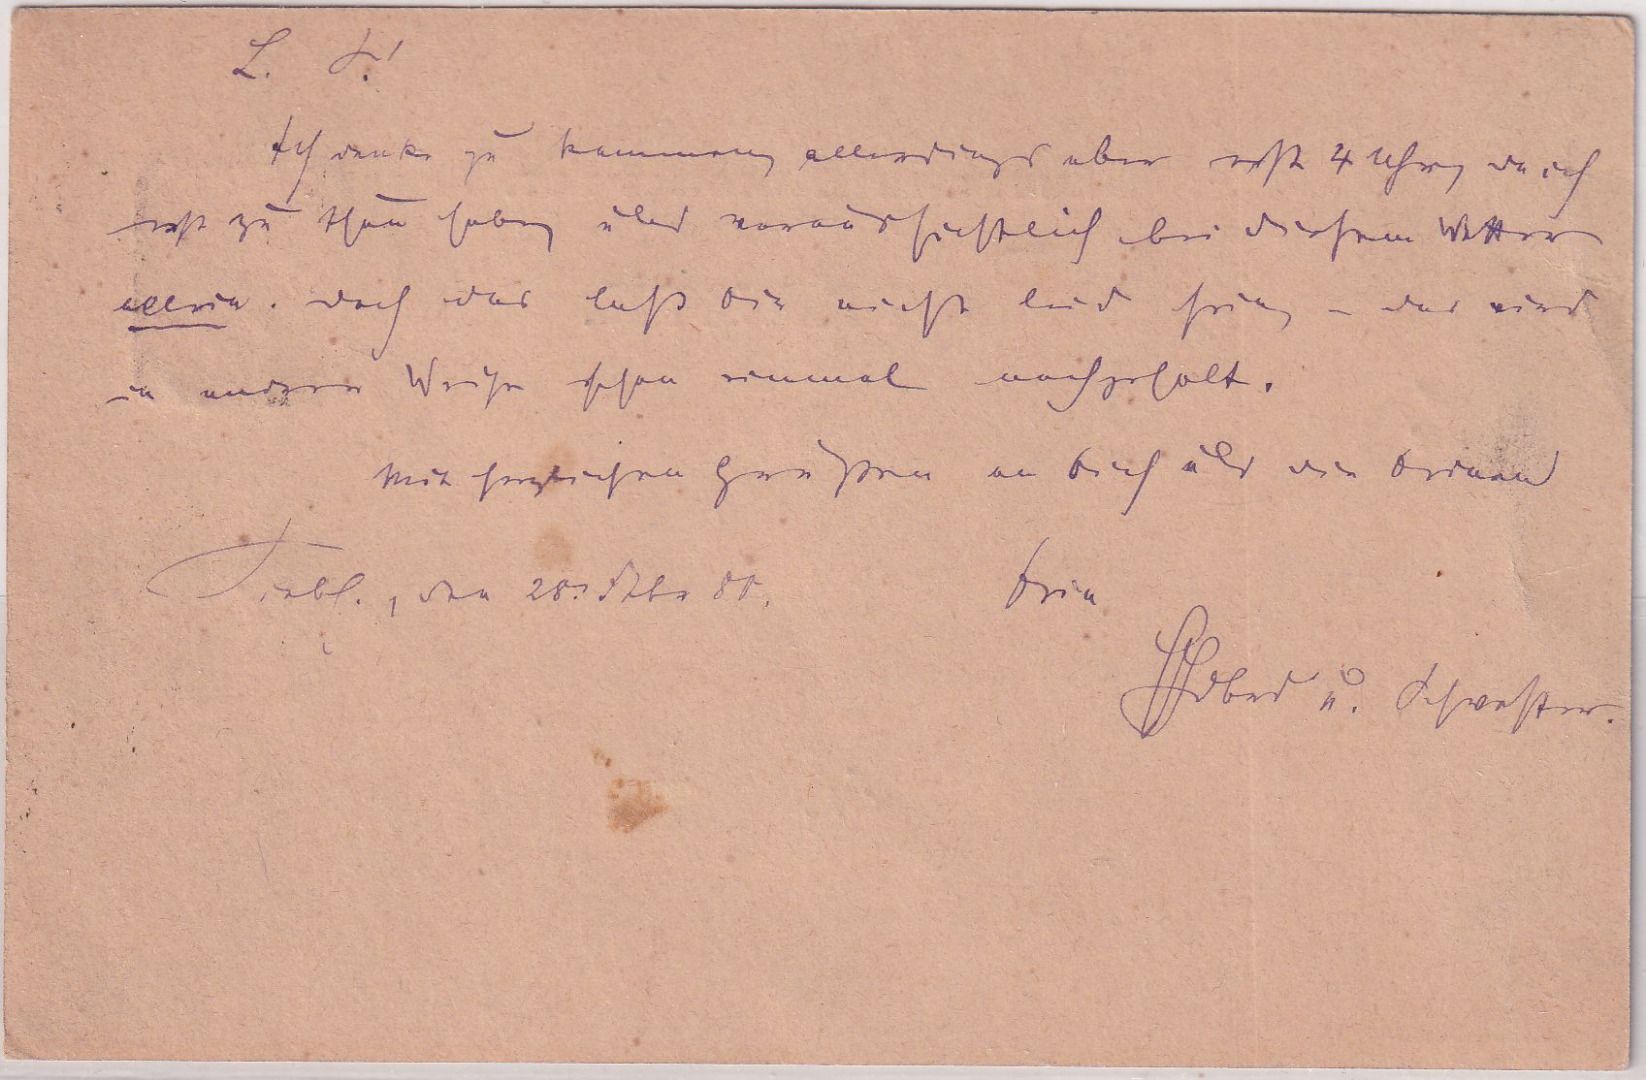 L. F.!
Ich denke zu kommen, allerdings aber erst 4 Uhr, da ich
erst zu thun habe, und voraussichtlich bei diesem Wetter
allein. Doch das laß Dir nicht leid sein, – das wird
in anderer Weise schon einmal nachgeholt.
Mit herzlichen Grüßen an Dich und die Deinen
den 28. Octbr 88.
Dein
u. Schwester.